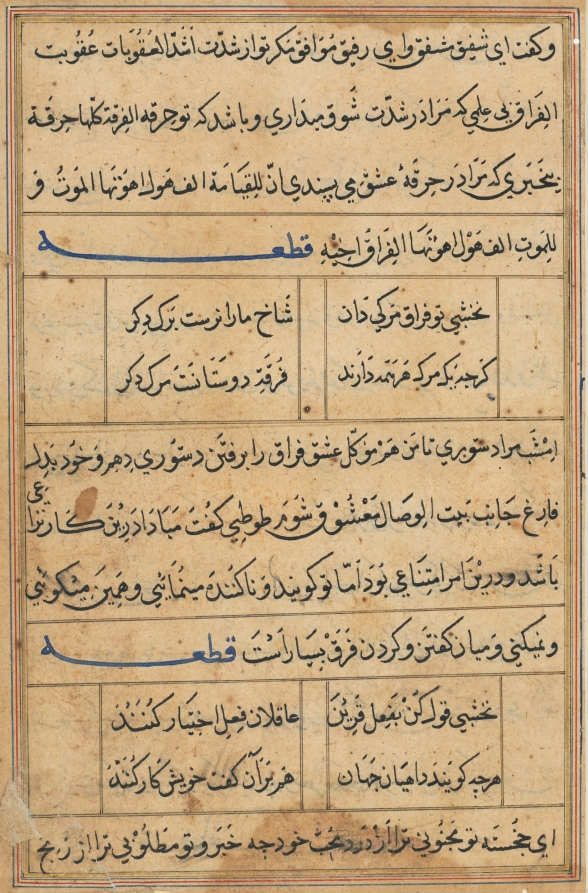 و کفت ای شفیق مشفق وای رفیق موافق مکر تو از شدت اشد العقوبات عقوبت
الفراق بی علمی که مرا در شدت شوق میداری و باشد که تو حرقه الفرقة کلها حرقة
بیخبری که مرا در حرقهٔ عشق می پسندی ان للقیامة الف هول اهونها الموت و
للموت الف هول اهونها الفراق احبه قطعه
نخشبی تو فراق مرکی دان شاخ مارا نرست برک دکر
کرچه یک مرک هرهمه دارند فرقة دوستانت مرک دکر
امشب مرا دستوری تا من هم موکل عشق فراق را برفتن دستوری دهم و خود بدل
فارغ جانب بیت الوصال معشوق شوم طوطی کفت مبادا درین کار نزاعی
باشد و درین امر امتناعی بود اما تو کویند و نا کننده مینمائی و همین میکوئی
و نمیکنی و میان کفتن و کردن فرق بسیار است قطعه
نخشبی قول کن بفعل قرین عاقلان فعل اختیار کنند
هرچه کویند داهیان جهان هم بران کفت خویش کار کنند
ای خجسته تو محبوبی ترا از درد محب خود چه خبر و تو مطلوبی ترا از رنج